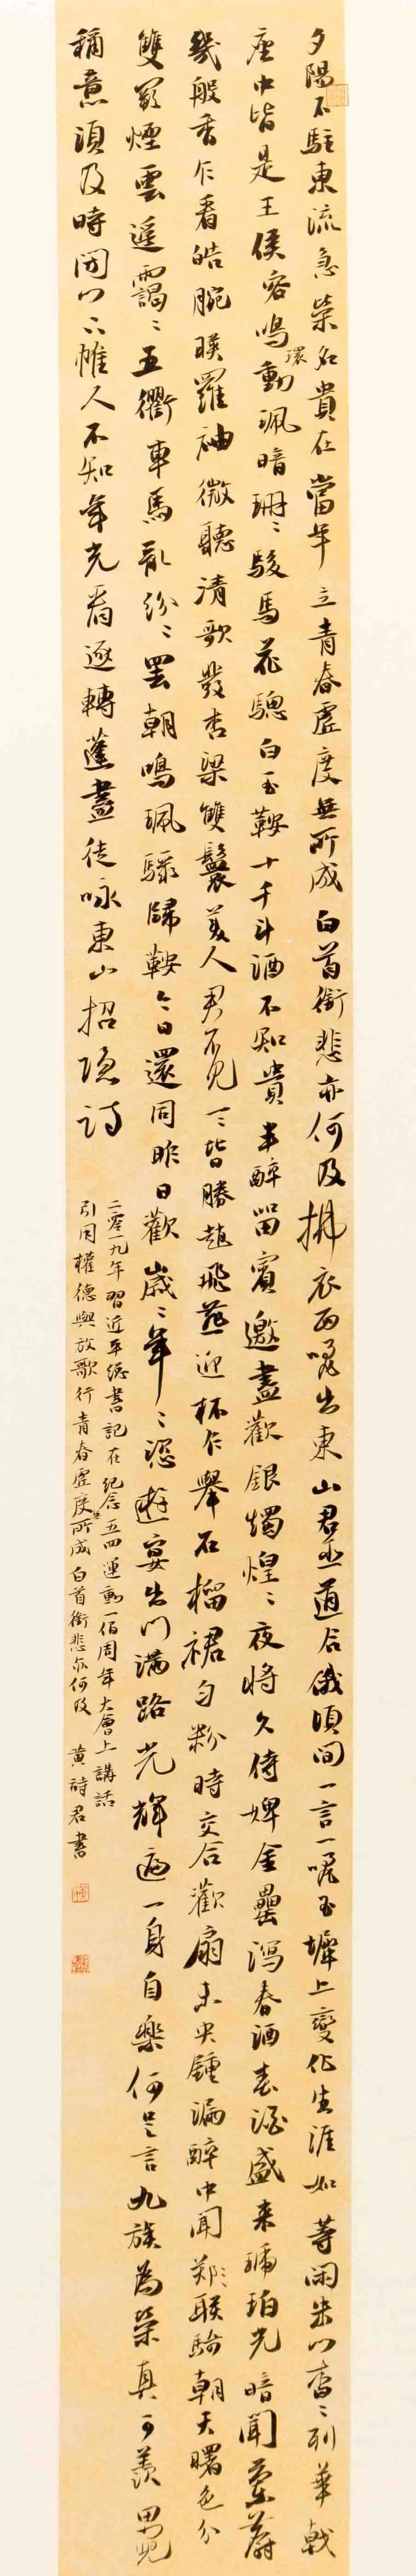 夕陽不駐東流急榮名貴在當年立青春虛度無所成白首銜悲亦何及拂衣西笑出東山君臣道合俄頃間一言一笑玉墀上變化生涯如等閑朱門杳〻列華戟
座中皆是王侯客鳴環動珮暗珊〻駿馬花驄白玉鞍十千斗酒不知貴半醉留賓邀盡歡銀燭煌〻夜將久侍婢金罍瀉春酒春酒盛來琥珀光暗聞蘭麝
幾般香乍看皓腕映羅袖微聽清歌發杏梁雙鬟美人君不見一〻皆勝趙飛燕迎杯乍舉石榴裙勻粉時交合歡扇未央鍾漏醉中聞聯騎朝天曙色分
雙闕煙雲遙靄〻五衢車馬亂紛〻罷朝鳴珮驟歸鞍今日還同昨日歡歲〻年〻恣遊宴出門滿路光輝遍一身自樂何足言九族為榮真可羨男兒
稱意須及時閉門下帷人不知年光看逐轉蓬盡徒咏東山招隱詩
二零一九年習近平總書記在紀念五四運動一佰周年大會上講話
引用權德輿放歌行青春虛度無所成白首銜悲亦何及 黃詩君書